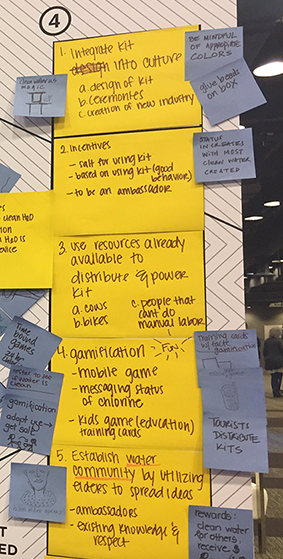 4
1. Integrate kit
design into culture
a. design of kit
b. ceremonies
c. creation of new industry
BE MINDFUL
OF APPROPRIATE
COLORS
glue beads
on box
clean water as
MOSAIC
2. Incentives
- salt for using kit
- based on using kit (good
behavior)
- to be an ambassador
STATUS
INCREASES
WITH MOST
CLEAN WATER
CREATED
clean H2O
H2O is
3. Use resources already
available to
distribute & power
kit
a. cows
b. bikes
c. people that
cant do
manual labor
4. gamification - FUN
- mobile game
- messaging status
of chlorine
- kids game (education)
training cards
Time
bound
games
24 hr
water is clean
gamification
adopt use →
get salt
training cards
gamification
TOURISTS
DISTRIBUTE
KITS
5. Establish water
community by utilizing
elders to spread ideas
- ambassadors
- existing knowledge &
respect
rewards:
clean water
for others:
receive